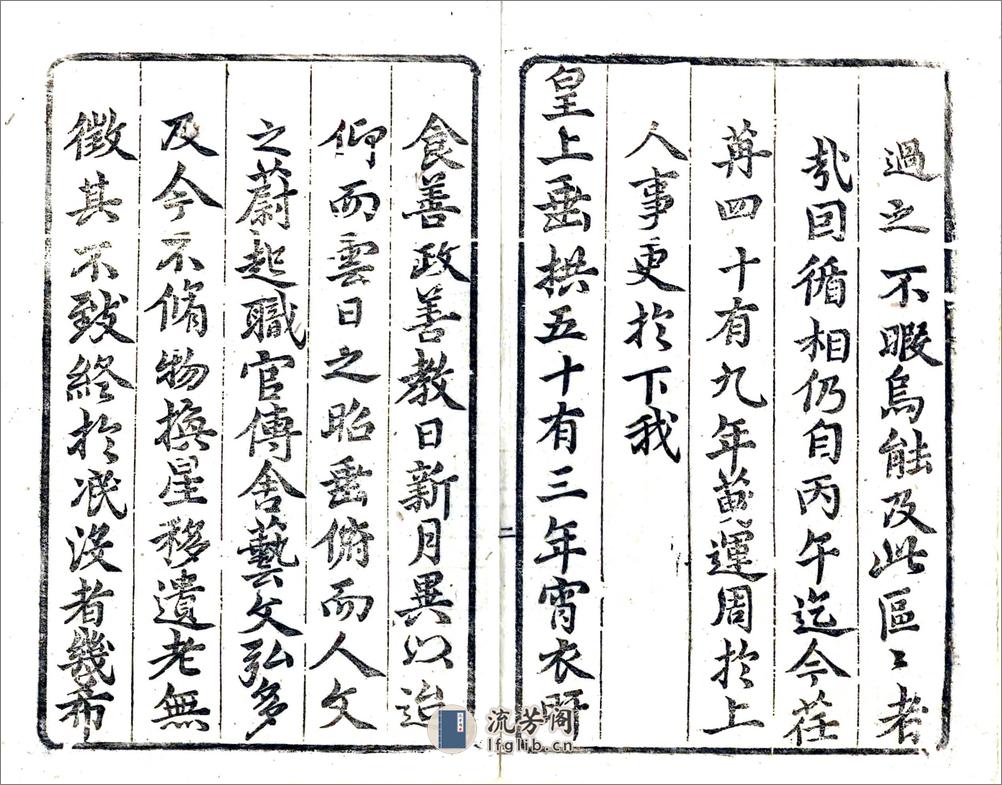 過之不暇烏能及此區〻者
㢤因循相仍自丙午迄今荏
苒四十有九年蓂運周於上
人事更於下我
皇上垂拱五十有三年宵衣旰
食善政善教日新月異以迨
仰而雲日之昭垂俯而人文
之蔚起職官傳舍藝文弘多
及今不脩物換星移遺老無
徵其不致終於泯沒者幾希
二
流芳閣
lfglib.cn